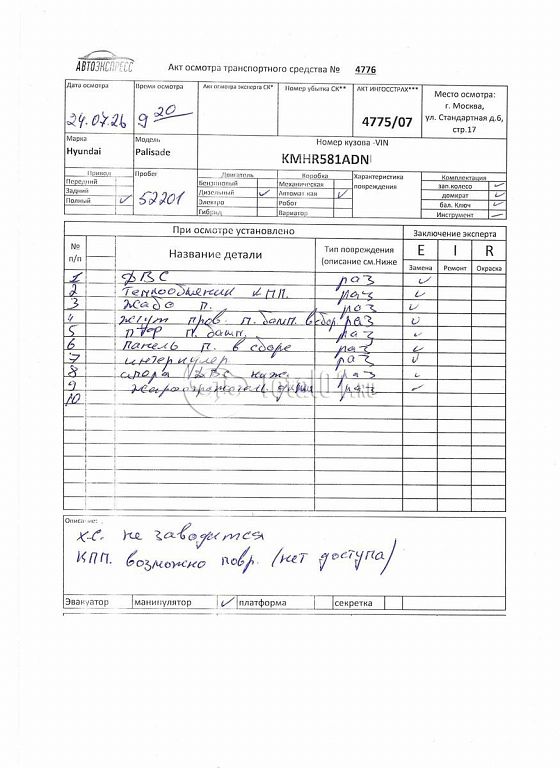 АВТОЭКСПРЕСС
Акт осмотра транспортного средства № 4776
Дата осмотра
24.07.26
Время осмотра
9 20
Акт осмотра эксперта СК*
Номер убытка СК**
АКТ ИНГОССТРАХ***
4775/07
Место осмотра:
г. Москва,
ул. Стандартная д.6,
стр.17
Марка
Hyundai
Модель
Palisade
Номер кузова -VIN
KMHR581ADN
Привод
Передний
Задний
Полный ✓
Пробег
52201
Двигатель
Бензиновый
Дизельный ✓
Электро
Гибрид
Коробка
Механическая
Автоматикая ✓
Робот
Вариатор
Характеристика
повреждения
Комплектация
зап.колесо ✓
домкрат ✓
бал. Ключ ✓
Инструмент
При осмотре установлено
Заключение эксперта
№
п/п
Название детали
Тип повреждения
(описание см.Ниже
E I R
Замена Ремонт Окраска
1 ДВС раз ✓
2 Теплообменник КПП. раз ✓
3 жабо п. раз ✓
4 жгут пров. п. бамп. в сбор. раз ✓
5 п. бамп. раз ✓
6 панель п. в сборе раз ✓
7 интеркулер раз ✓
8 опора ДВС ниж. раз ✓
9 раз ✓
10
Описание:
х.с. не заводится
КПП. возможно повр. (нет доступа)
Эвакуатор манипулятор ✓ платформа секретка